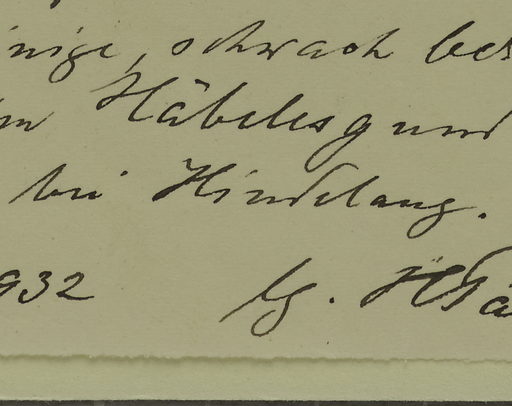 inige, schwach bes
m Häbelesgund
bei Hindelang.
932 lg. H Pa